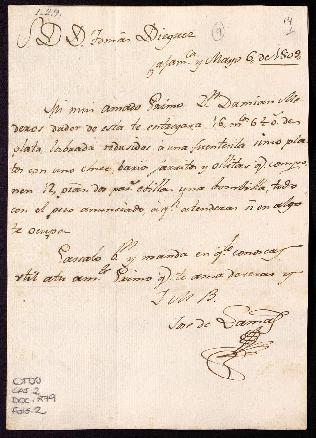 129.
9
14
S. D. D. Tomás Dieguez
Cajam.ca y Mayo 6 de 1802
Mi muy amado Primo Dn Damian Me
deros dador de esta te entregara 16 m.s 6 o. de
plata labrada redusidos a una fuentecita, sinco pla
tos con uno
jarrito, y ollitas q. compo
nen 12 piezas dos pa.s ebillas una bombilla, todo
con el peso anunciado a q.e atenderas si en algo
te ocupa.
Pasalo b.n y manda en q.to conoscas
util a tu am.te Primo q. te ama deveras y
T. M. B.
Jose de Lama
OTDO
CAJ. 2
DOC. 879
FOLS. 2